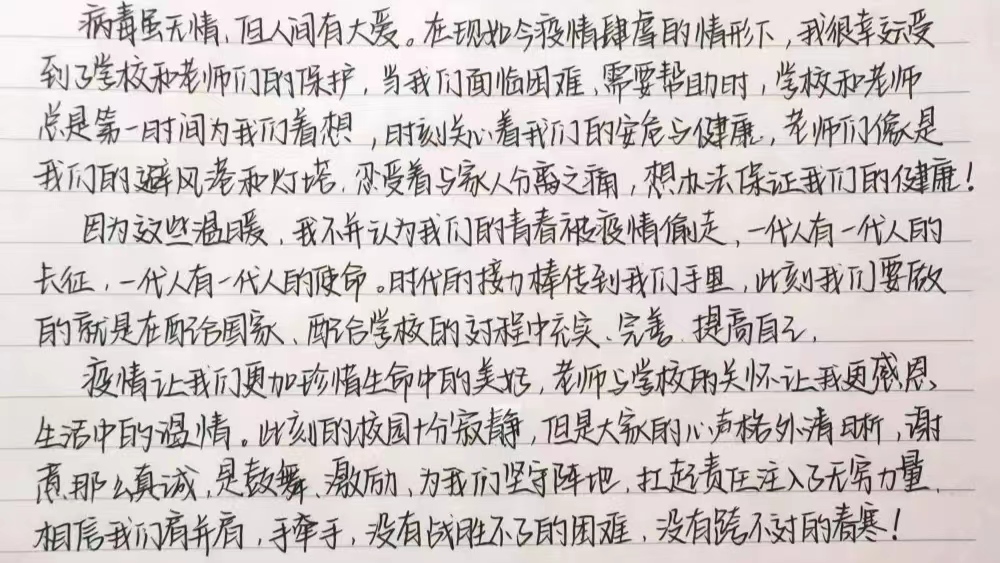 病毒虽无情,但人间有大爱。在现如今疫情肆虐的情形下,我很幸运受
到了学校和老师们的保护,当我们面临困难、需要帮助时,学校和老师
总是第一时间为我们着想,时刻关心着我们的安危与健康,老师们像是
我们的避风港和灯塔,忍受着与家人分离之痛,想办法保证我们的健康!
因为这些温暖,我不并认为我们的青春被疫情偷走,一代人有一代人的
长征,一代人有一代人的使命。时代的接力棒传到我们手里,此刻我们要做
的就是在配合国家、配合学校的过程中充实、完善、提高自己,
疫情让我们更加珍惜生命中的美好,老师与学校的关怀让我更感恩
生活中的温情。此刻的校园十分寂静,但是大家的心声格外清晰,谢
意那么真诚,是鼓舞、激励,为我们坚守阵地,扛起责任注入了无穷力量,
相信我们肩并肩,手牵手,没有战胜不了的困难,没有跨不过的春寒!